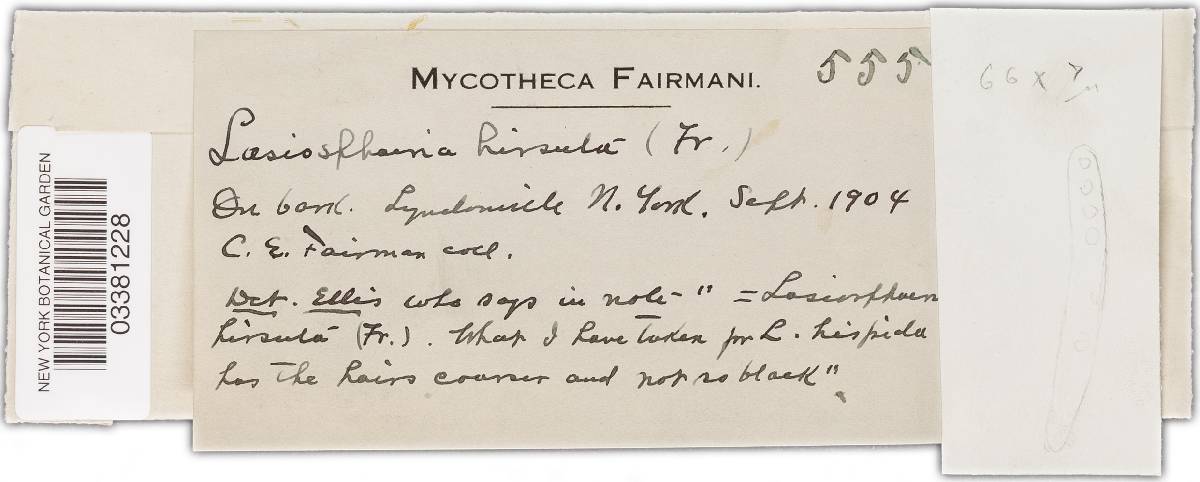 MYCOTHECA FAIRMANI.
555
Lasiosphaeria hirsuta (Fr.)
On bark. Lyndonville N. York. Sept. 1904
C. E. Fairman coll.
Det. Ellis who says in note- " = Lasiosphaer
hirsuta (Fr.). What I have taken for L. hispida
has the hairs coarser and not so black"
66 x 7 µ
NEW YORK BOTANICAL GARDEN
03381228